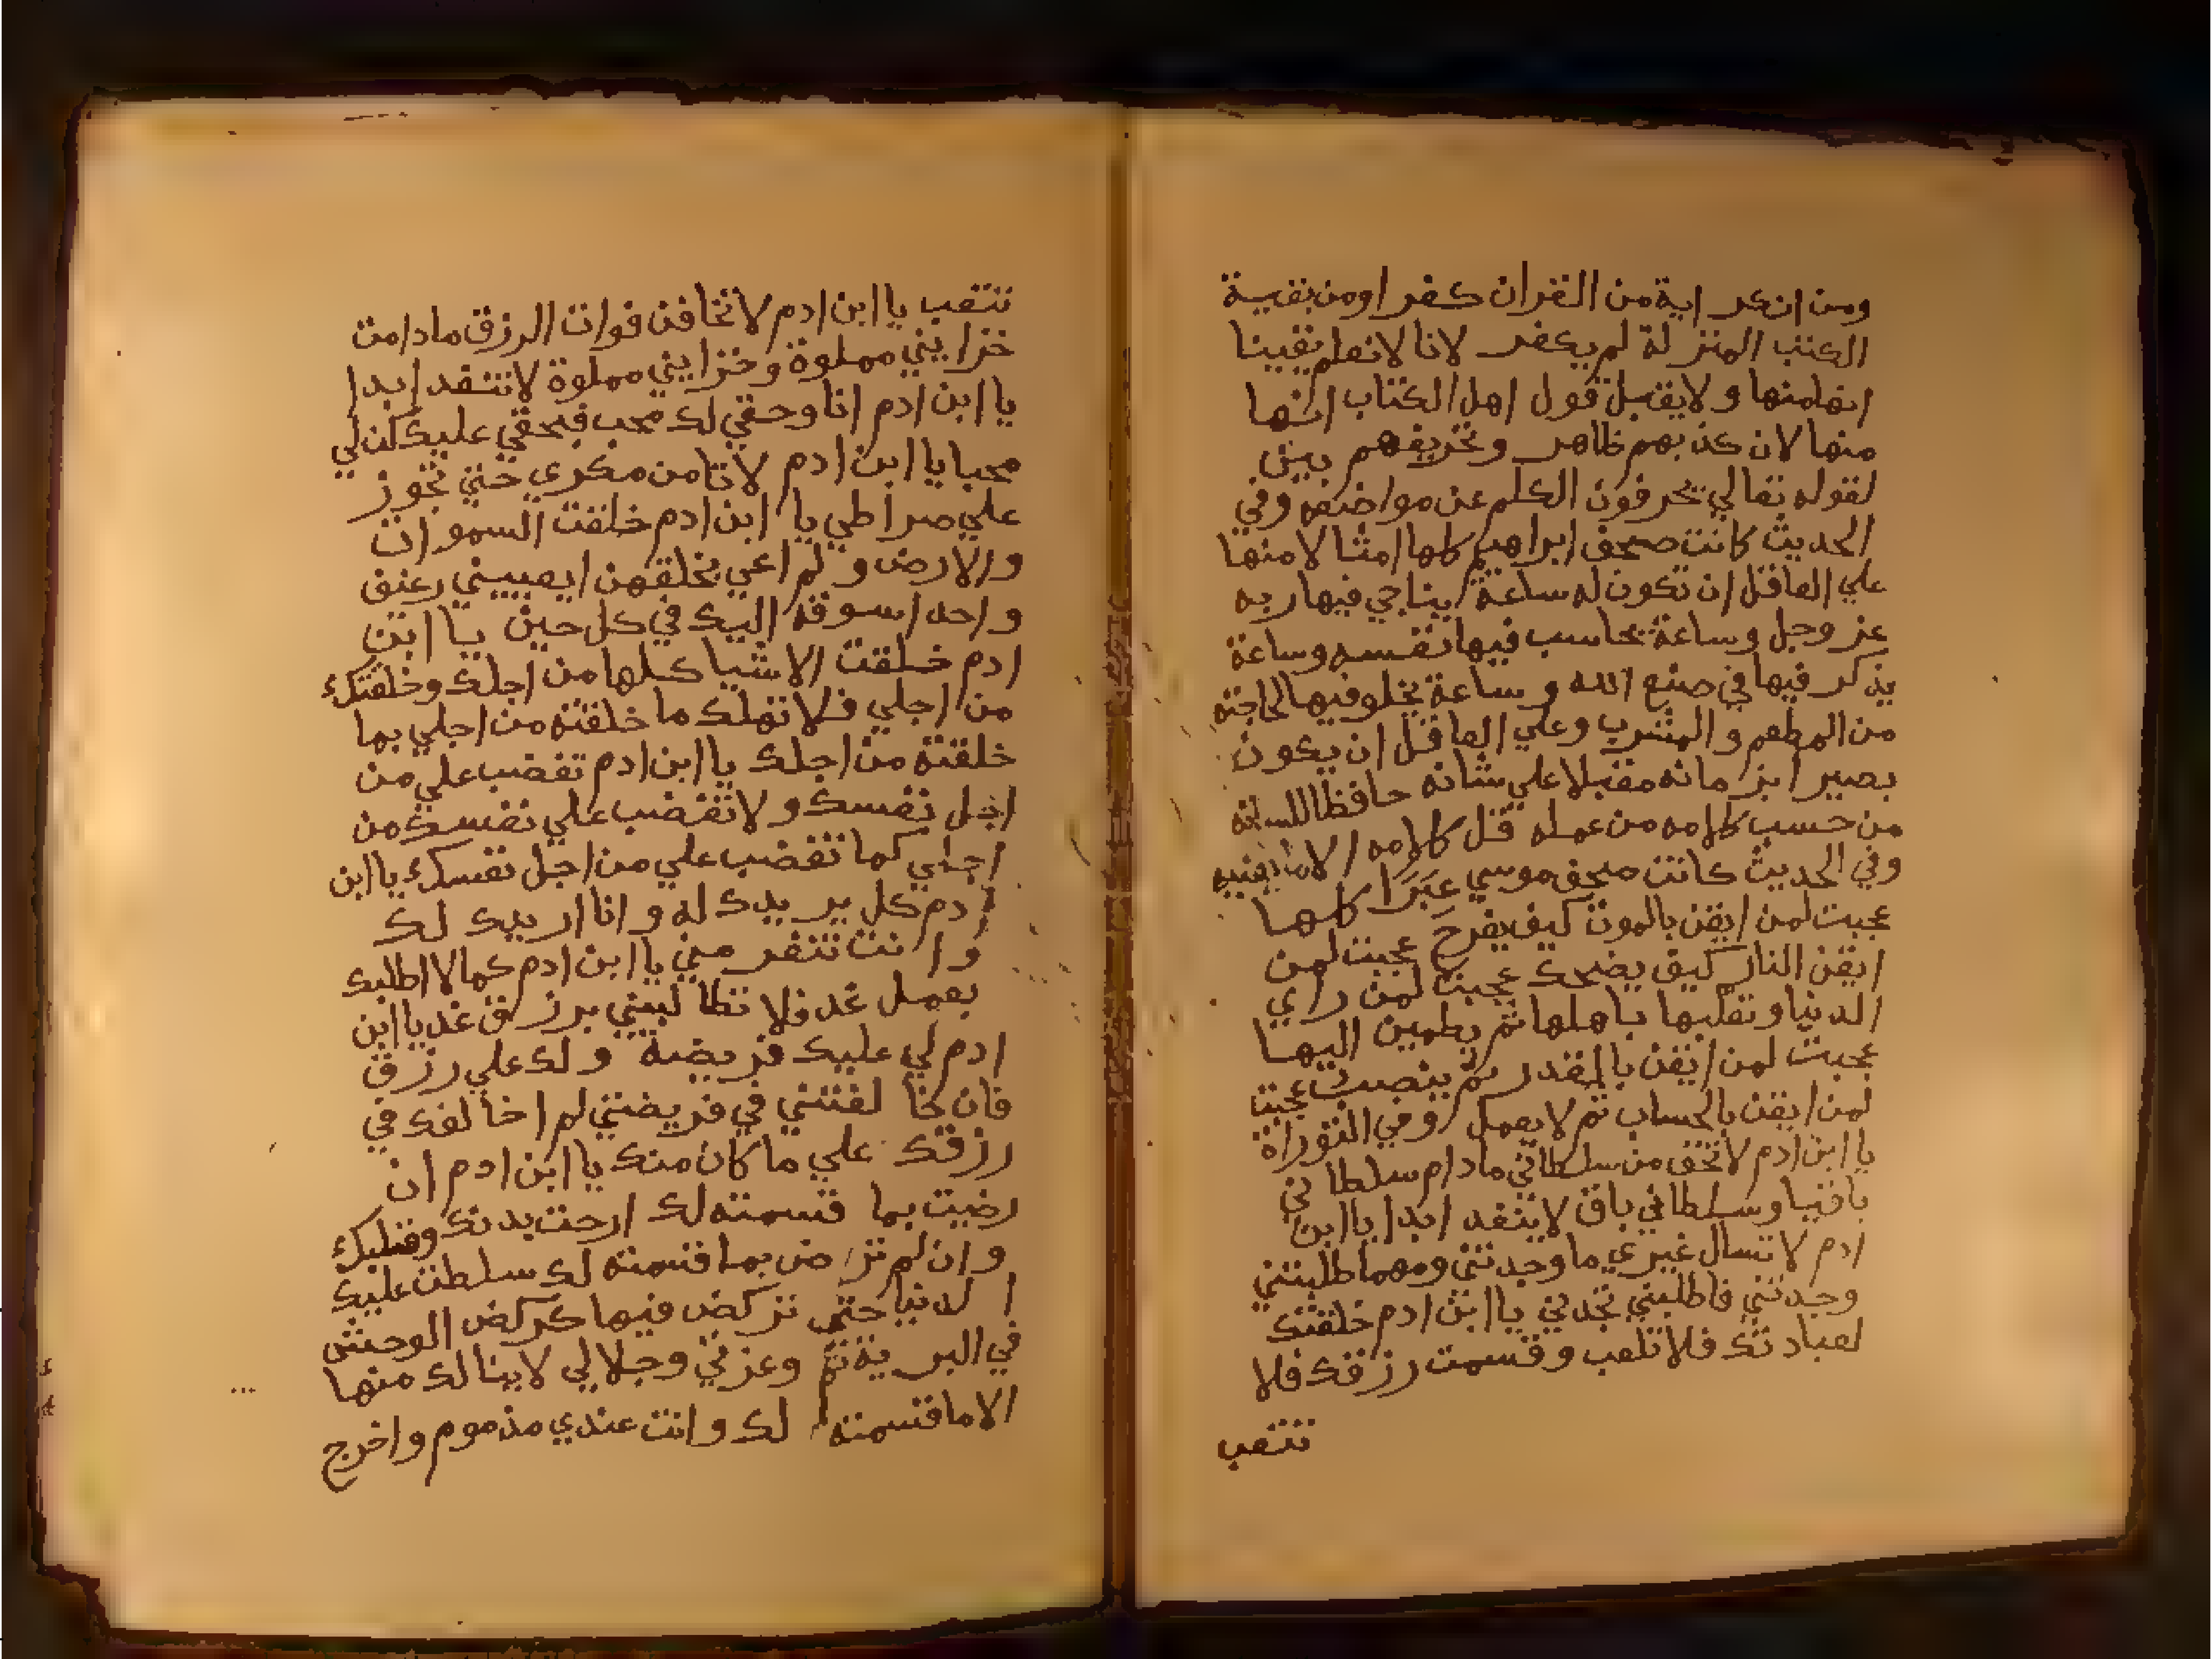 ومن انكر اية من القران كفر اومن بقية
الكتب المنزلة لم يكفر لانا لانعلم يقينا
انها منها ولا يقبل قول اهل الكتاب انها
منها لان كذبهم ظاهر وتحريفهم بين
لقوله تعالي يحرفون الكلم عن مواضعه وفي
الحديث كانت صحف ابراهيم كلها امثالا منها
علي العاقل ان تكون له ساعة يناجي فيها ربه
عز وجل وساعة يحاسب فيها نفسه وساعة
يذكر فيها في صنع الله وساعة يخلو فيها لحاجته
من المطعم والمشرب وعلي العاقل ان يكون
بصيرا بزمانه مقبلا علي شانه حافظا للسانه
من حسب كلامه من عمله قل كلامه الا ما يعنيه
وفي الحديث كانت صحف موسي عبرا كلها
عجبت لمن ايقن بالموت كيف يفرح عجبت لمن
ايقن النار كيف يضحك عجبت لمن راي
الدنيا وتقلبها باهلها ثم يطمين اليها
عجبت لمن ايقن بالقدر ثم ينصب عجبت
لمن ايقن بالحساب ثم لا يعمل وفي التوراة
يا ابن ادم لا تخف من سلطاني مادام سلطاني
باقيا وسلطاني باق لا ينفد ابدا يا ابن
ادم لا تسال غيري ما وجدتني ومهما طلبتني
وجدتني فاطلبني تجدني يا ابن ادم خلقتك
لعبادتك فلا تلعب وقسمت رزقك فلا
تتعب
تتعب يا ابن ادم لا تخافن فوات الرزق مادامت
خزايني مملوة وخزايني مملوة لا تنفد ابدا
يا ابن ادم انا وحقي لك محب فبحقي عليك كن لي
محبا يا ابن ادم لا تامن مكري حتي تجوز
علي صراطي يا ابن ادم خلقت السموات
والارض ولم اعي بخلقهن ايعييني رغيف
واحد اسوقه اليك في كل حين يا ابن
ادم خلقت الاشيا كلها من اجلك وخلقتك
من اجلي فلا تهلك ما خلقته من اجلي بما
خلقته من اجلك يا ابن ادم تغضب علي من
اجل نفسك ولا تغضب علي نفسك من
اجلي كما تغضب علي من اجل نفسك يا ابن
ادم كل يريدك له وانا اريدك لك
وانت تنفر مني يا ابن ادم كما لا اطلبك
بعمل غد فلا تطالبني برزق غد يا ابن
ادم لي عليك فريضة ولك علي رزق
فان خالفتني في فريضتي لم اخالفك في
رزقك علي ما كان منك يا ابن ادم ان
رضيت بما قسمته لك ارحت بدنك وقلبك
وان لم ترض بما قسمته لك سلطت عليك
الدنيا حتي تركض فيها كركض الوحش
في البرية ثم وعزتي وجلالي لا ينالك منها
الا ما قسمته لك وانت عندي مذموم واخرج